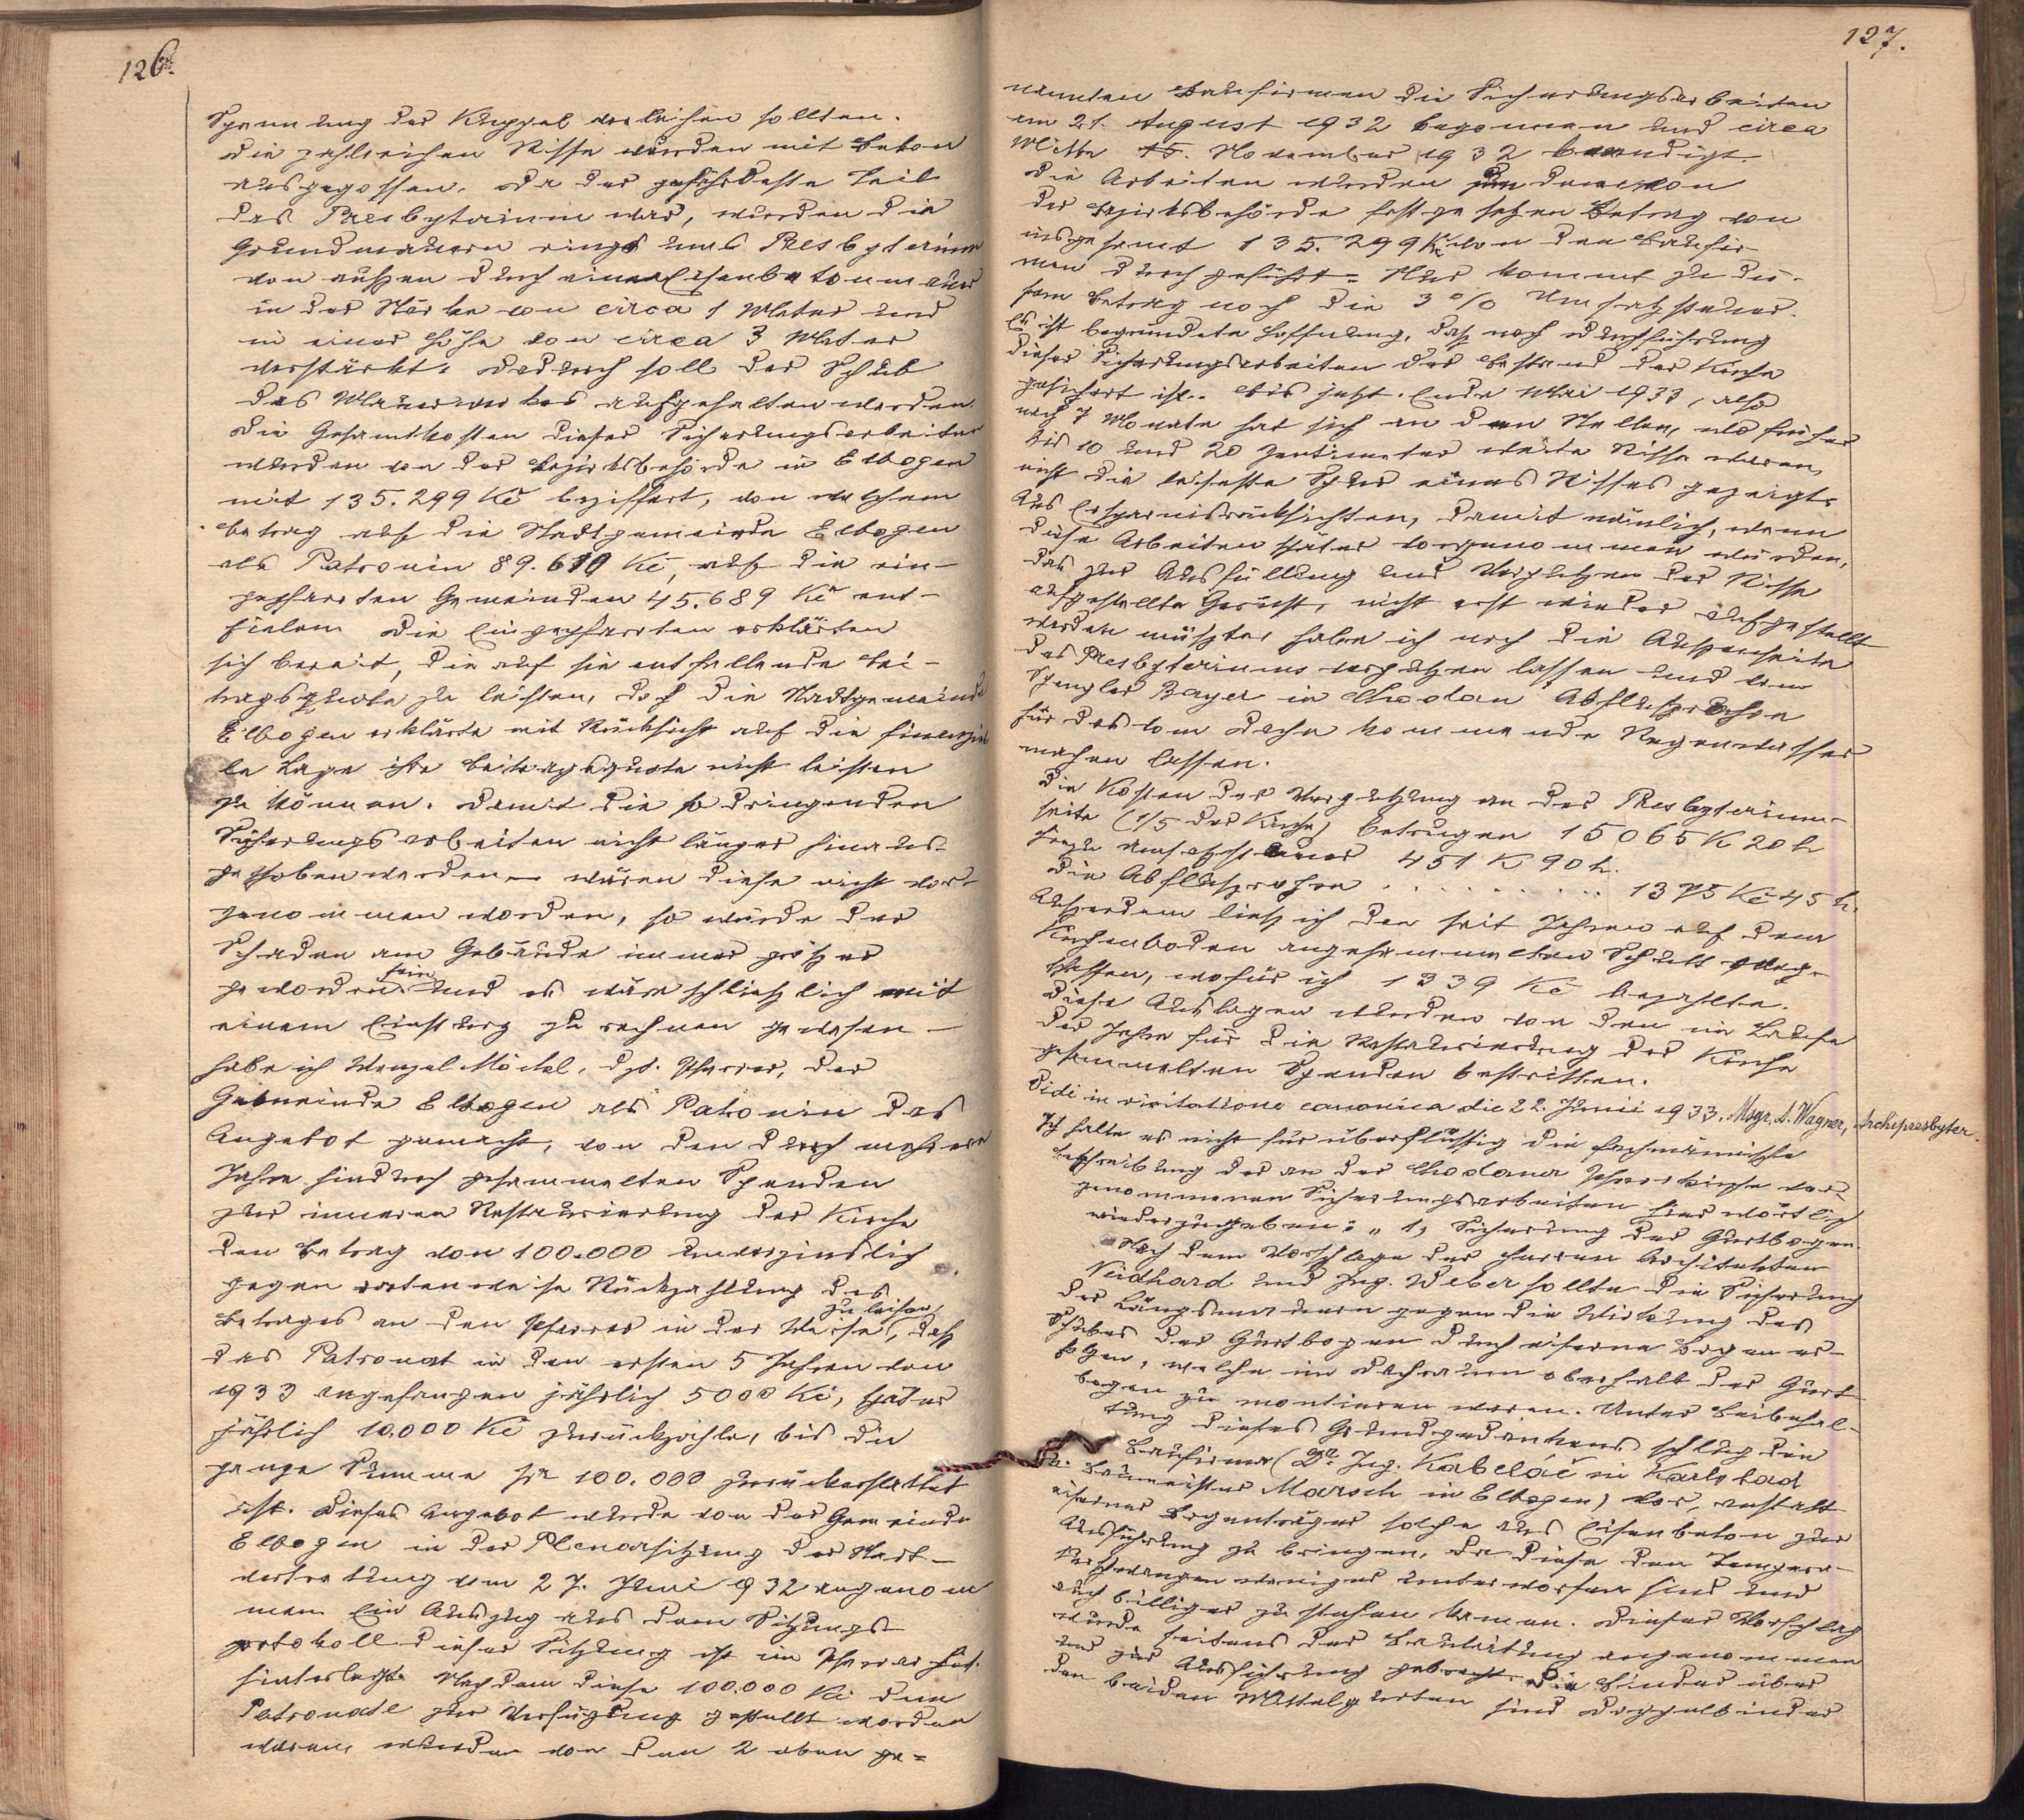 126.
Spannung der Kuppel verleihen sollten.
Die zahlreichen Risse wurden mit Beton
ausgegossen. Da der gefährdetste Teil
das Presbyterium war, wurden die
Grundmauern rings ums Presbyterium
von außen durch eine Eisenbetonmauer
in der Stärke von circa 1 Meter und
in einer Höhe von circa 3 Meter
verstärkt. Dadurch soll der Schub
des Mauerwerkes aufgehalten werden.
Die Gesamtkosten dieser Sicherungsarbeiten
wurden von der Bezirksbehörde in Elbogen
mit 135.299 Kč beziffert, von welchem
Betrag auf die Stadtgemeinde Elbogen
als Patronin 89.610 Kč, auf die ein-
gepfarrten Gemeinden 45.689 Kč ent-
fielen. Die Eingepfarrten erklärten
sich bereit, die auf sie entfallende Bei-
tragsquote zu leisten, doch die Stadtgemeinde
Elbogen erklärte mit Rücksicht auf die finanziel
le Lage ihre Beitragsquote nicht leisten
zu können. Damit die so dringenden
Sicherungsarbeiten nicht länger hinaus-
geschoben werden – wären diese nicht vor-
genommen worden, so würde der
Schaden am Gebäude immer größer
geworden sein und es wäre schließlich mit
einem Einsturz zu rechnen gewesen –
habe ich Wenzel Möckl, dzt. Pfarrer, der
Gemeinde Elbogen als Patronin das
Angebot gemacht, von den durch mehrere
Jahre hindurch gesammelten Spenden
zur inneren Restaurierung der Kirche
den Betrag von 100.000 unverzinslich
gegen ratenweise Rückzahlung des
Betrages an den Pfarrer in der Weise zu leihen, daß
das Patronat in den ersten 5 Jahren von
1933 angefangen jährlich 5000 Kč, später
jährlich 10.000 Kč zurückzahle, bis die
ganze Summe per 100.000 zurückerstattet
ist. Dieses Angebot wurde von der Gemeinde
Elbogen in der Plenarsitzung der Stadt-
vertretung vom 27. Juni 1932 angenom
men. Ein Auszug aus dem Sitzungs-
protokoll dieser Sitzung ist im Pfarrarchiv
hinterlegt. Nachdem diese 100.000 Kč dem
Patronate zur Verfügung gestellt worden
waren, wurden von den 2 oben ge=
127.
nannten Baufirmen die Sicherungsarbeiten
am 21. August 1932 begonnen und circa
Mitte 15. November 1932 beendigt.
Die Arbeiten wurden zu dem von
der Bezirksbehörde festgesetzen Betrag von
insgesamt 135.299 Kč von den Baufir-
men durchgeführt. Nur kommt zu die-
sem Betrag noch die 3% Umsatzsteuer.
Es ist begründete Hoffnung, daß nach Durchführung
dieser Sicherungsarbeiten der Bestand der Kirche
gesichert ist. Bis jetzt, Ende Mai 1933, also
nach 7 Monate hat sich an den Stellen, wo früher
bis 10 und 20 Zentimeter weite Risse waren,
nicht die leiseste Spur eines Risses gezeigt.
Aus Ersparnisrücksichten, damit nämlich, wenn
diese Arbeiten später vorgenommen würden,
das zur Ausfüllung und Verputzen der Risse
aufgestellte Gerüst, nicht erst wieder aufgestellt
werden müßte, habe ich noch die Außenseite
des Presbyteriums verputzen lassen und vom
Spengler Bayer in Chodau Abflußrohre
für das vom Dache kommende Regenwasser
machen lassen.
Die Kosten der Verputzung an der Presbyterium-
seite (1/5 der Kirche) betrugen 15065 K 20 h
hiezu Umsatzsteuer 451 K 90 h.
Die Abflußrohre . . . . . . . . . 1375 Kč 45 h.
Außerdem ließ ich den seit Jahren auf dem
Kirchenboden angesammelten Schutt weg-
schaffen, wofür ich 1339 Kč bezahlte.
Diese Auslagen wurden von den im Laufe
der Jahre für die Restaurierung der Kirche
gesammelten Spenden bestritten.
Vidi in visitatione canonica die 22. Junii 1933. Msgr. A. Wagner, Archipresbyter.
Ich halte es nicht für überflüssig die fachmännische
Beschreibung der an der Chodauer Pfarrkirche vor-
genommenen Sicherungsarbeiten hier wörtlich
wiederzugeben: „1, Sicherung der Gurtbogen.
Nach dem Vorschlage der Herren Architekten
Neidhard und Ing. Weber sollte die Sicherung
der Längsmauern gegen die Wirkung des
Schubes der Gurtbogen durch eiserne Bogen er-
folgen, welche im Dachraum oberhalb der Gurt-
bogen zu montieren waren. Unter Beibehal-
tung dieses Grundgedankens schlug die
Baufirma (Dr. Ing. Kabeláč in Karlsbad
u. Baumeister Marsch in Elbogen) vor, anstatt
eiserner Bogenträger solche aus Eisenbeton zur
Ausführung zu bringen, da diese den Tempera-
weniger unterworfen sind und
auch billiger zu stehen kamen. Dieser Vorschlag
wurde seitens der Bauleitung angenommen
und zur Ausführung gebracht. Die Binder über
den beiden Mittelgurten sind Doppelbinder